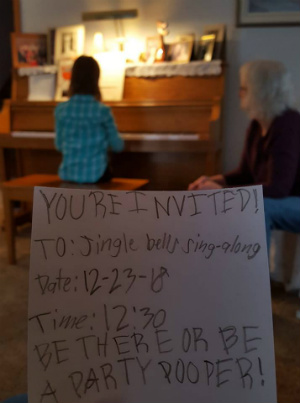 YOU'RE INVITED!
TO: Jingle bells sing-along
Date: 12-23-18
Time: 12:30
BE THERE OR BE
A PARTY POOPER!